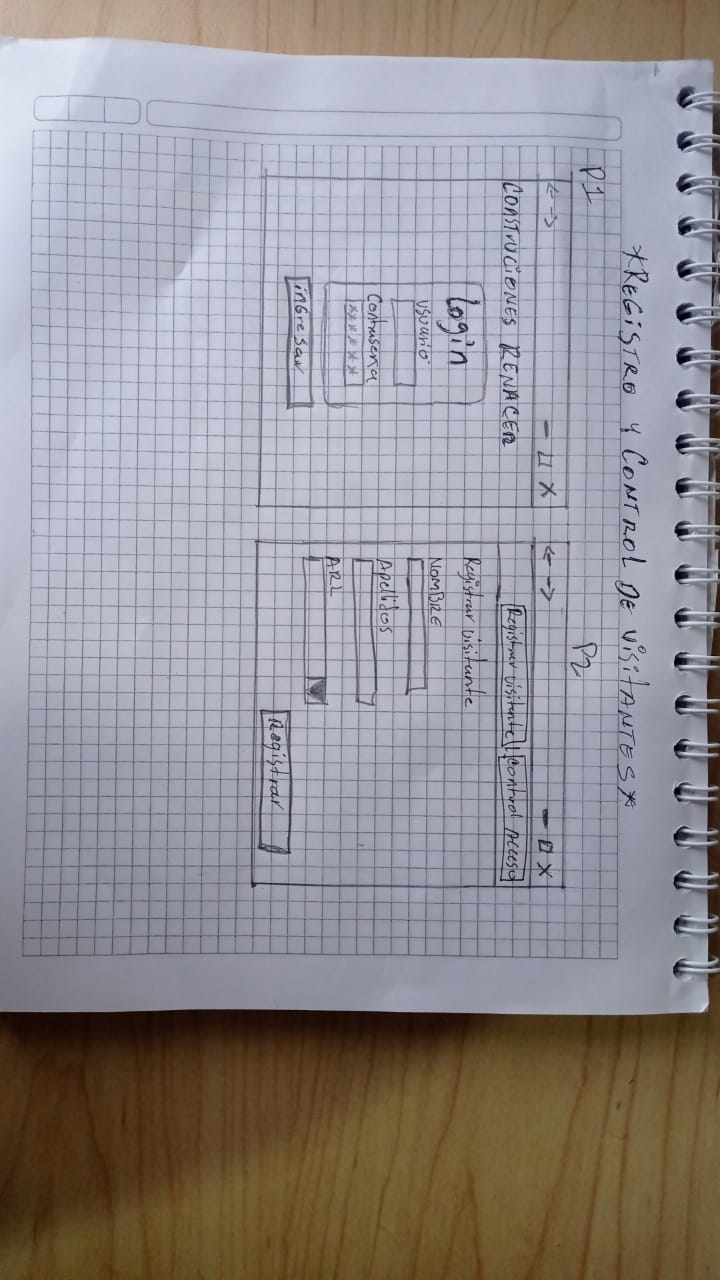 *REGISTRO Y CONTROL DE VISITANTES*
P1
CONSTRUCIONES RENACER
Login
usuario
Contraseña
******
inGresar
P2
Registrar visitante | Control Acceso
Registrar visitante
NOMBRE
Apellidos
ARL
Registrar